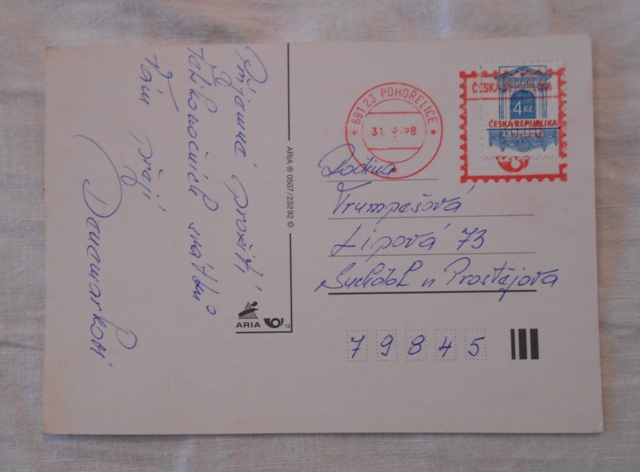 Příjemné prožití
Velikonočních svátků
Vám přejí
ARIA ® 0507/23292 ©
ARIA
12
691 23 POHOŘELICE
31. 3. 98
ČESKÁ REPUBLIKA
4 Kč
ČESKÁ REPUBLIKA
Rodina
Trumpešová
Lipová 73
Suchdol u Prostějova
7 9 8 4 5